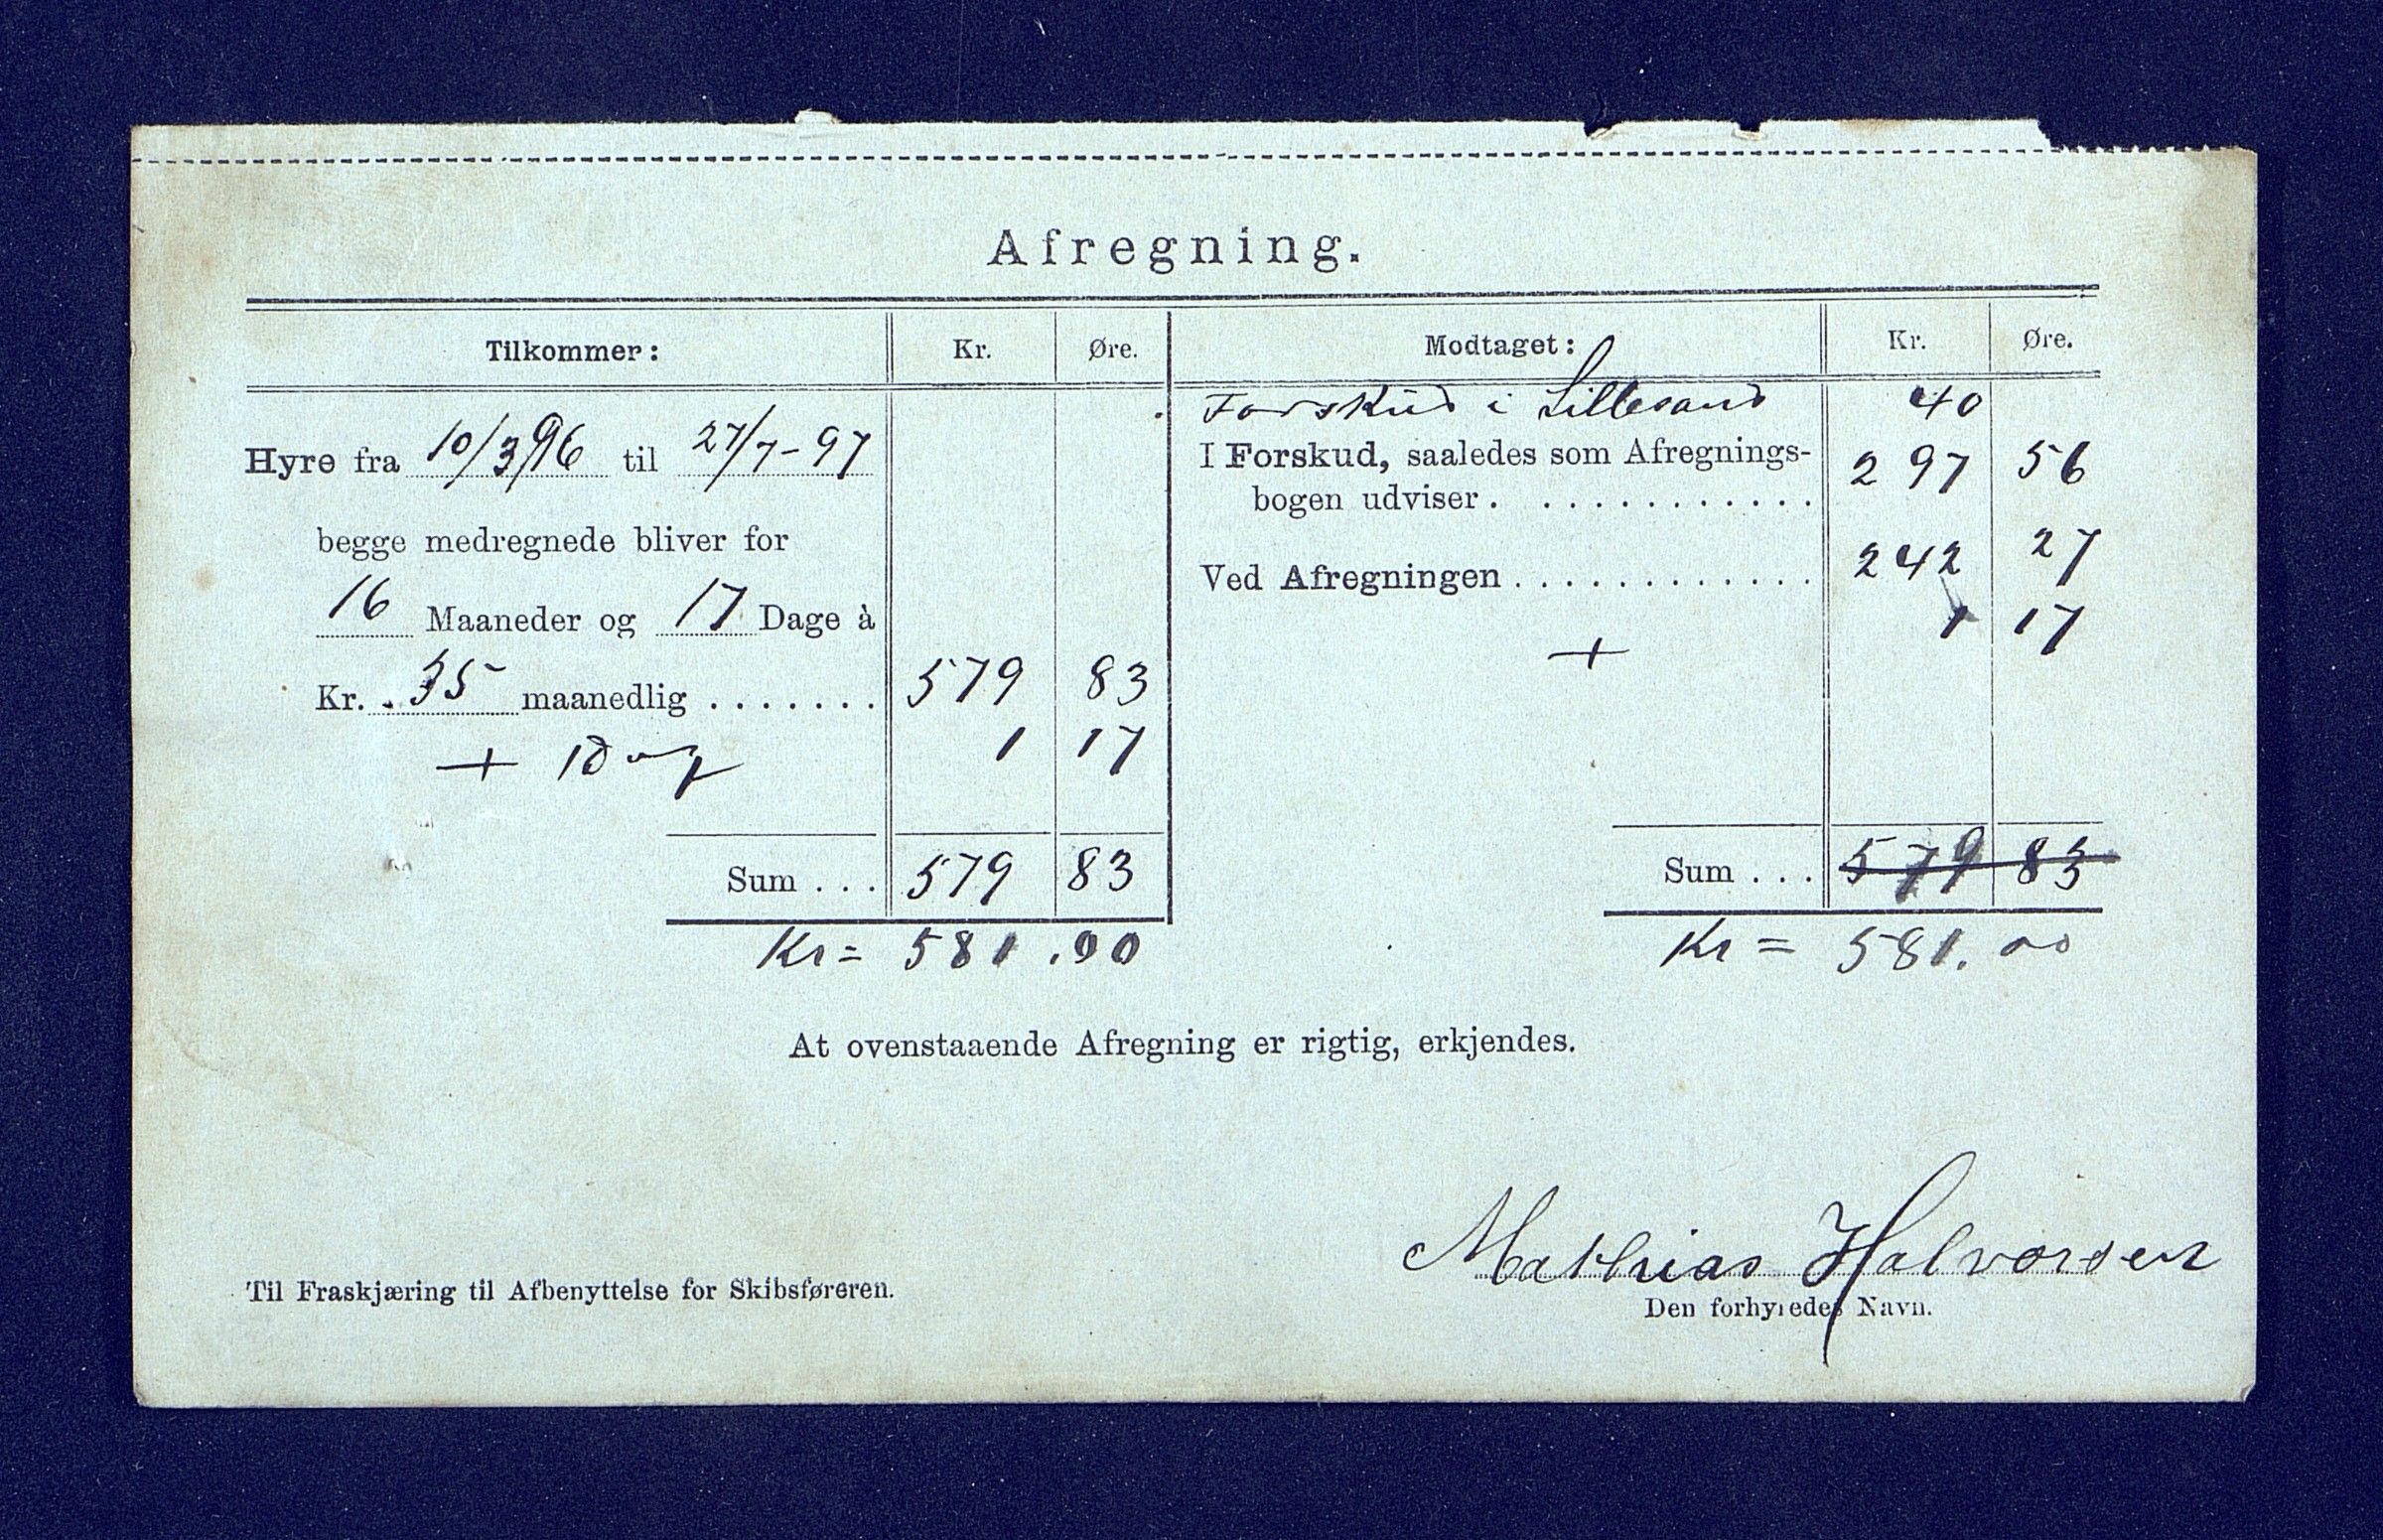 Afregning.
Tilkommer: Kr. Øre.
Hyre fra 10/3 96 til 27/7-97
begge medregnede bliver for
16 Maaneder og 17 Dage à
Kr. 35 maanedlig ....... 579 83
+ 1 Dag 1 17
Sum ... 579 83
Kr = 581.00
Modtaget: Kr. Øre.
Forskud i Lillesand 40
I Forskud, saaledes som Afregnings-
bogen udviser . ........... 297 56
Ved Afregningen ............ 242 27
+ 1 17
Sum ... 579 83
Kr = 581.00
At ovenstaaende Afregning er rigtig, erkjendes.
Mathias Halvorsen
Den forhyredes Navn.
Til Fraskjæring til Afbenyttelse for Skibsføreren.